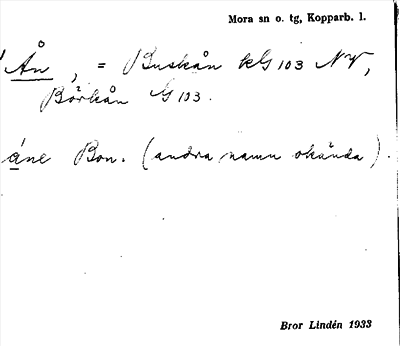 Mora sn o. tg, Kopparb. l.
Ån, = Buskån kG 103 NV,
Börkån G 103.
åne Bon. (andra namn okända).
Bror Lindén 1933